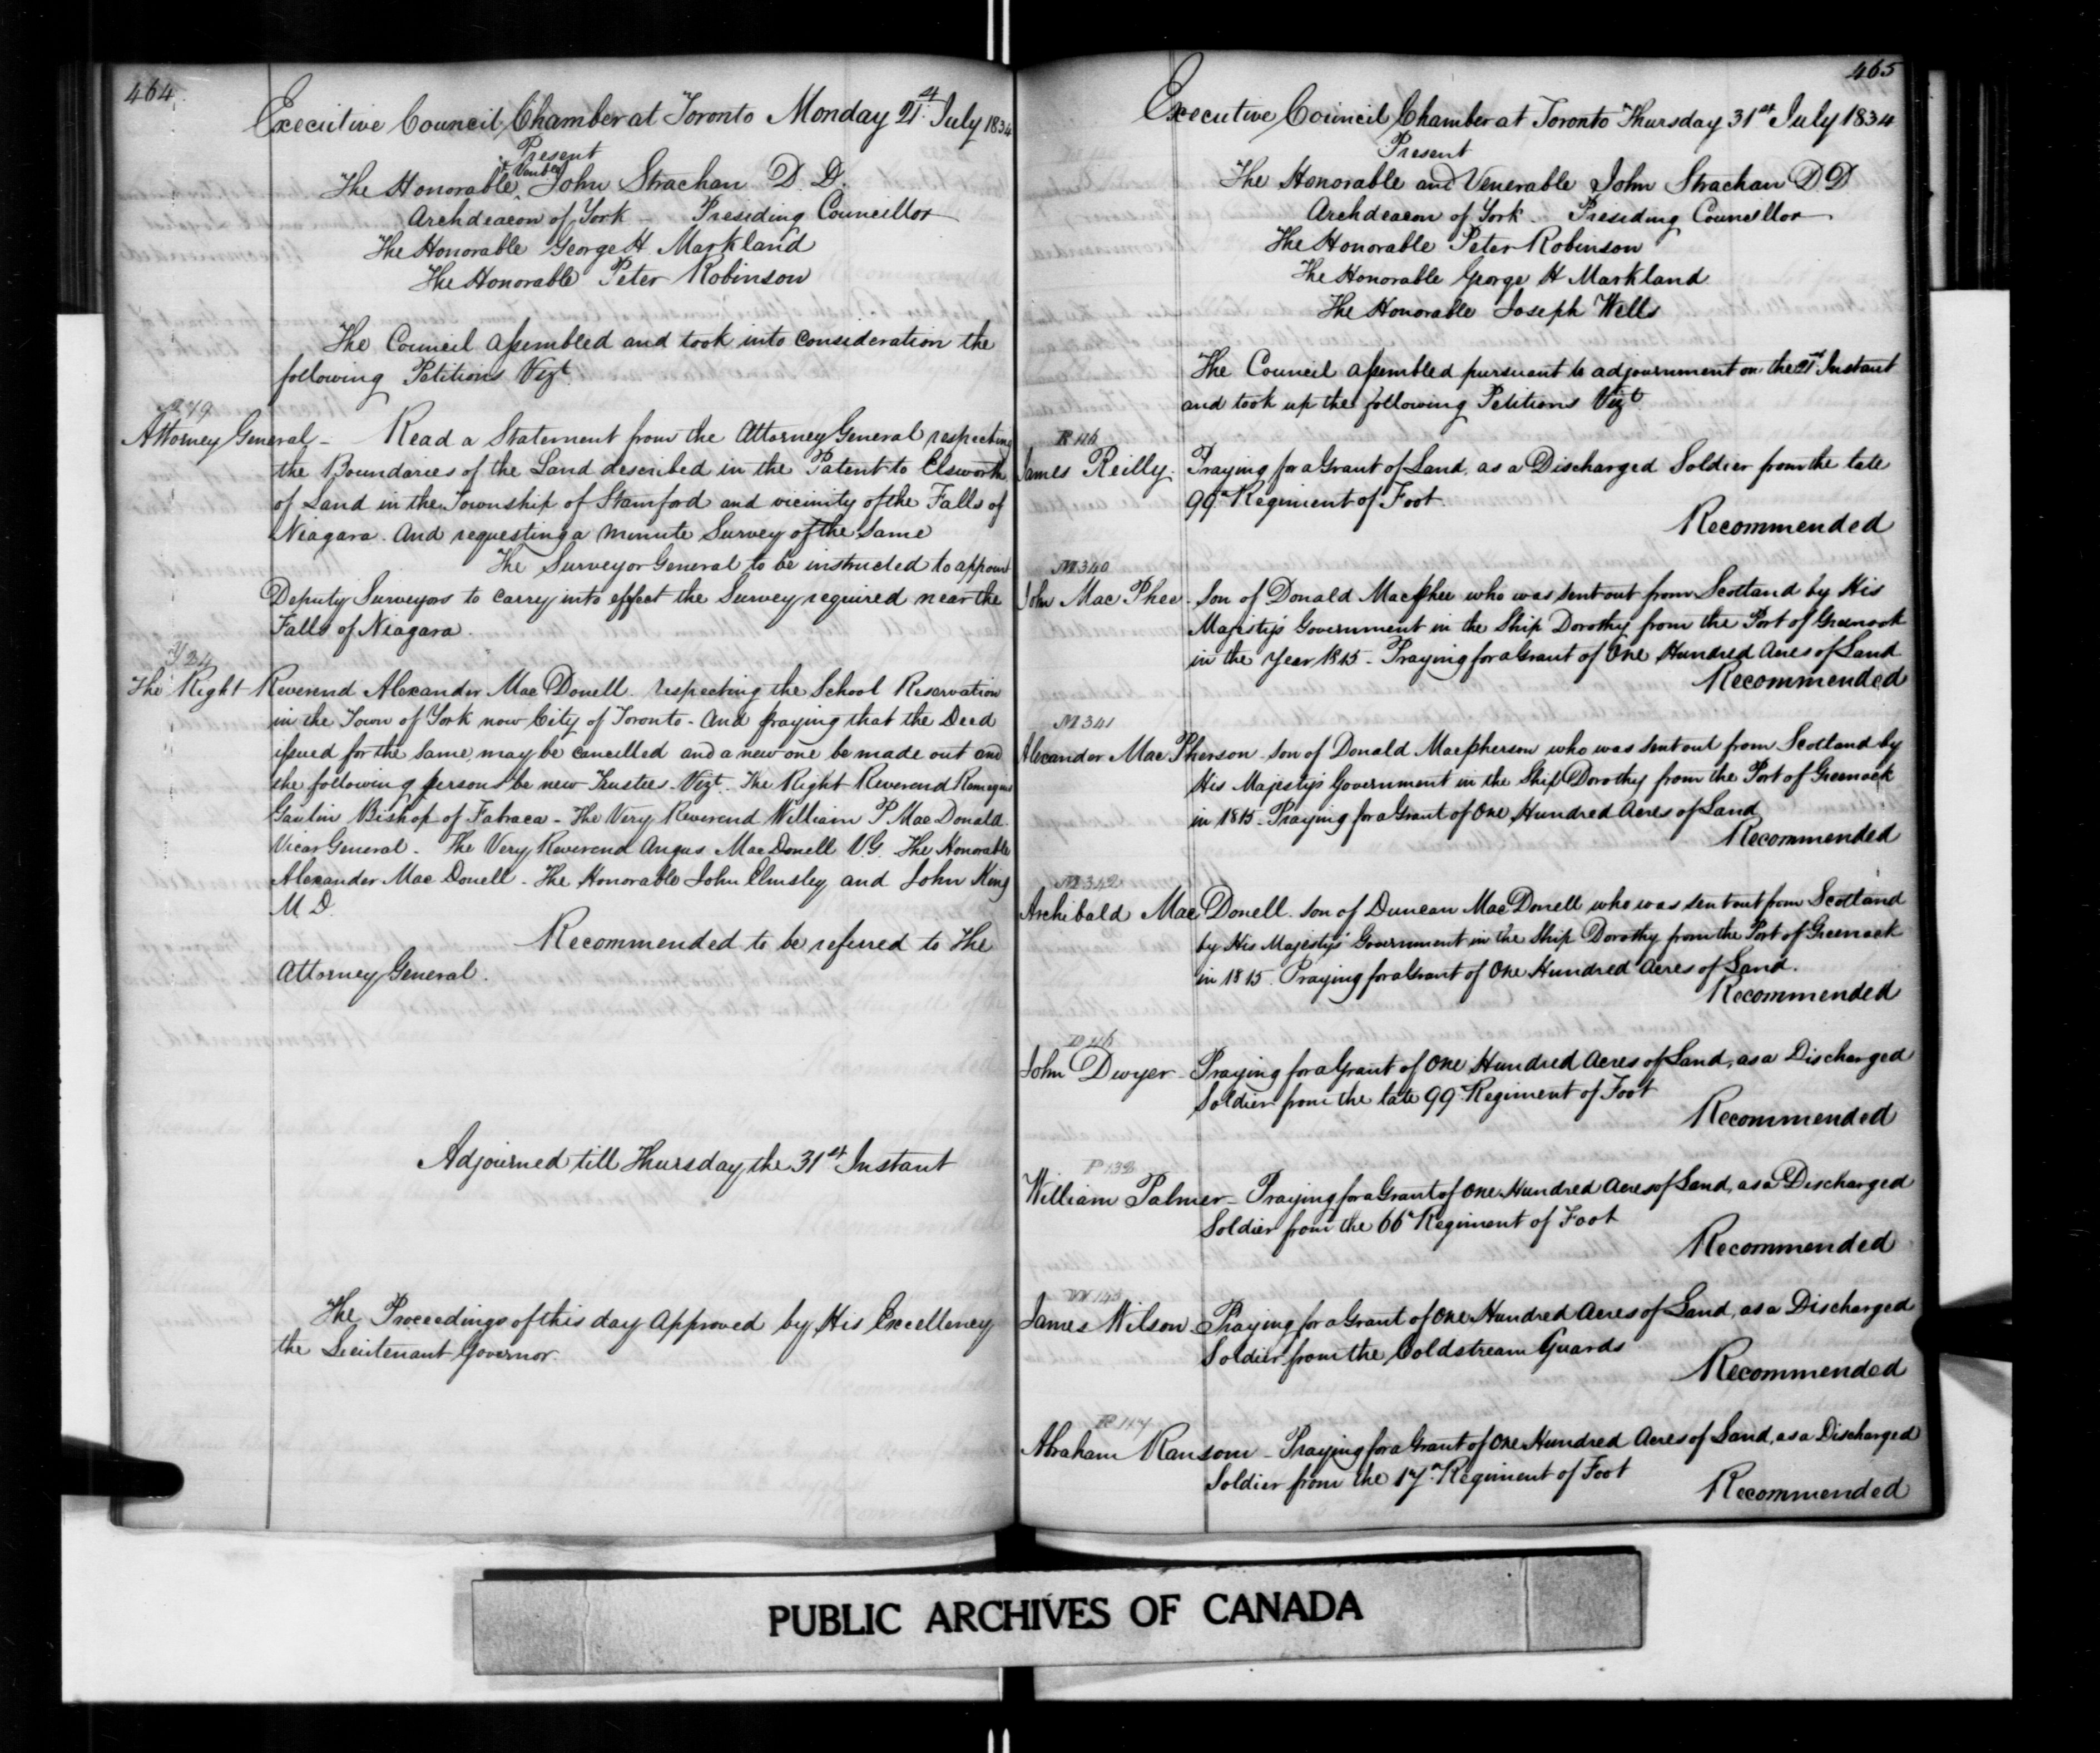 464
Executive Council Chamber at Toronto Monday 21st July 1834
Present
& Venble
The Honorable John Strachan D. D.
Archdeacon of York - Presiding Councillor
The Honorable George H Markland
The Honorable Peter Robinson
The Council assembled and took into consideration the
following Petitions Vizt
Attorney General - Read a Statement from the Attorney General respecting
the Boundaries of the Land described in the Patent to Elsworth
of Land in the Township of Stamford and vicinity of the Falls of
Niagara. And requesting a minute Survey of the Same
The Surveyor General to be instructed to appoint
Deputy Surveyors to carry into effect the Survey required near the
Falls of Niagara.
The Right Reverend Alexander Mac Donell. respecting the School Reservation
in the Town of York now City of Toronto - And praying that the Deed
issued for the same, may be cancelled and a new one be made out and
the following persons be new Trustees Vizt. The Right Reverend
Gaulin Bishop of Tabraca - The Very Reverend William P Mac Donald.
Vicar General - The Very Reverend Angus Mac Donell V.G. The Honorable
Alexander Mac Donell - The Honorable John Elmsley and John King
M D.
Recommended to be referred to The
Attorney General.
Adjourned till Thursday the 31st Instant
The Proceedings of this day Approved by His Excellency
the Lieutenant Governor.
465
Executive Council Chamber at Toronto Thursday 31st July 1834
Present
The Honorable and Venerable John Strachan D D
Archdeacon of York - Presiding Councillor
The Honorable Peter Robinson
The Honorable George H Markland
The Honorable Joseph Wells
The Council assembled pursuant to adjournment on the 21st Instant
and took up the following Petitions Vizt
James Reilly. Praying for a Grant of Land, as a Discharged Soldier from the late
99th Regiment of Foot.
Recommended
M 340
John Mac Phee - Son of Donald Macphee who was sent out from Scotland by His
Majesty's Government in the Ship Dorothy from the Port of Greenock
in the Year 1815 - Praying for a Grant of One Hundred Acres of Land
Recommended
M 341
Alexander Mac Pherson - son of Donald Macpherson who was sent out from Scotland by
His Majesty's Government in the Ship Dorothy from the Port of Greenock
in 1815 - Praying for a Grant of One Hundred Acres of Land
Recommended
M 342
Archibald Mac Donell. Son of Duncan Mac Donell who was sent out from Scotland
by His Majesty's Government in the Ship Dorothy from the Port of Greenock
in 1815. Praying for a Grant of One Hundred Acres of Land.
Recommended
John Dwyer - Praying for a Grant of One Hundred Acres of Land, as a Discharged
Soldier from the late 99th Regiment of Foot
Recommended
William Palmer - Praying for a Grant of One Hundred Acres of Land, as a Discharged
Soldier from the 66th Regiment of Foot
Recommended
W 143
James Wilson Praying for a Grant of One Hundred Acres of Land, as a Discharged
Soldier from the Coldstream Guards
Recommended
Abraham Ransom - Praying for a Grant of One Hundred Acres of Land, as a Discharged
Soldier from the 17th Regiment of Foot
Recommended
PUBLIC ARCHIVES OF CANADA